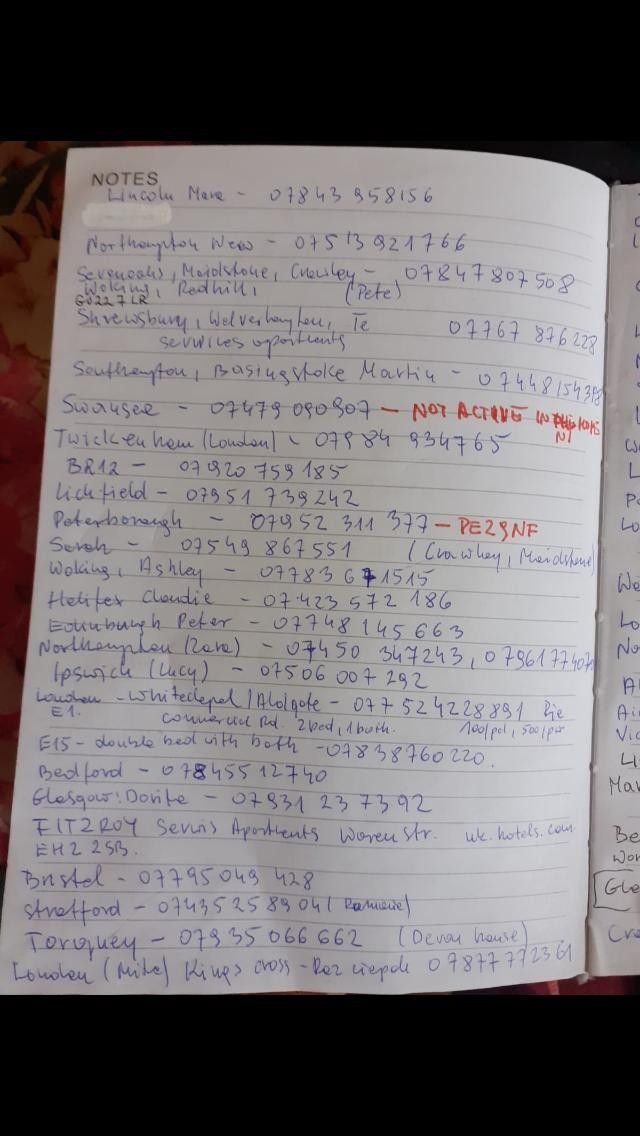 NOTES
Lincoln Mara - 07843 958156
Northampton New - 07513921766
Sevenoaks, Maidstone, Crawley - 07847807508
Woking, Redhill, (Pete)
GU22 7LR
Shrewsbury, Wolverhampton, Te 07767 876228
services apartments
Southampton, Basingstoke Martin - 07448154398
Swansea - 07479 090907 - NOT ACTIVE IN
Twickenham (London) - 07984 934765
BR12 - 07920 759185
Lichfield - 07951 739242
Peterborough - 07952 311 377 - PE29NF
Sarah - 07549 867551 (Crawley, Maidstone)
Woking, Ashley - 07783 671515
Halifax Claudie - 07423 572 186
Edinburgh Peter - 07748 145 663
Northampton (Zara) - 07450 347243,
Ipswich (Lucy) - 07506 007 292
London - Whitechapel / Aldgate - 077 524228891
E1. Commercial Rd. 2bed, 1bath. 100/pd, 500/pw
E15 - double bed with bath - 07838760220.
Bedford - 07845512740
Glasgow: Dorita - 07931 237392
FITZROY Servis Apartments Waren str. uk.hotels.com
EH2 2SB.
Bristol - 07795049 428
Stratford - 07435258904 (
Torquey - 07935 066 662 (Devon house)
London (Mike) Kings cross - 07877772361